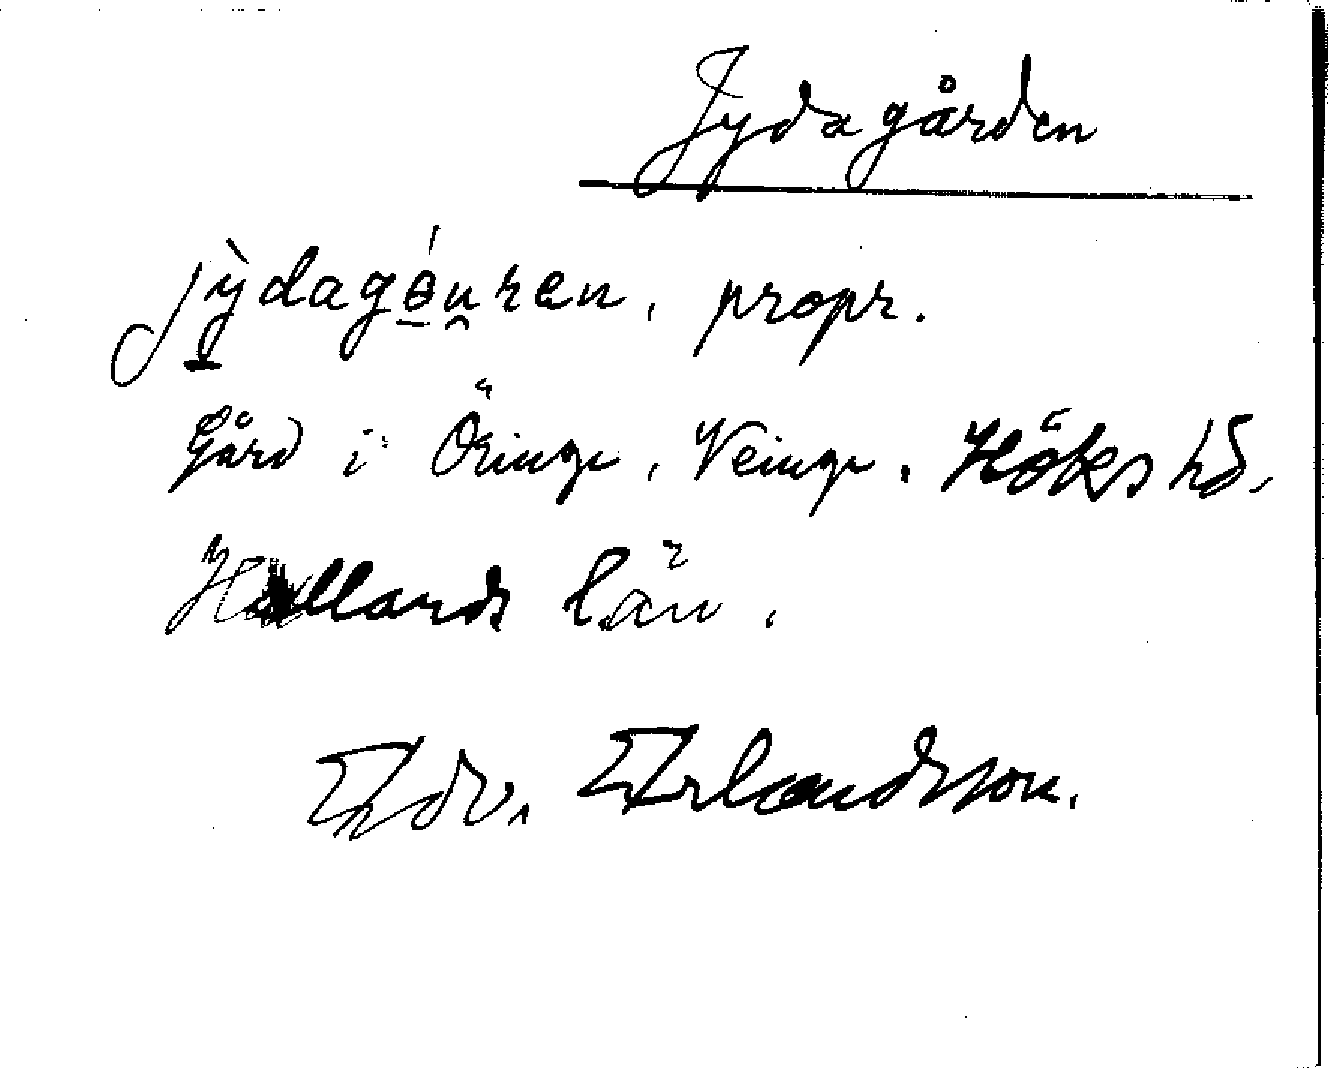 Jydagården
jỳdagɵ́u̯ren, propr.
Gård i Öringe, Veinge, Höks hd,
Hallands län.
Edv. Erlandsson.